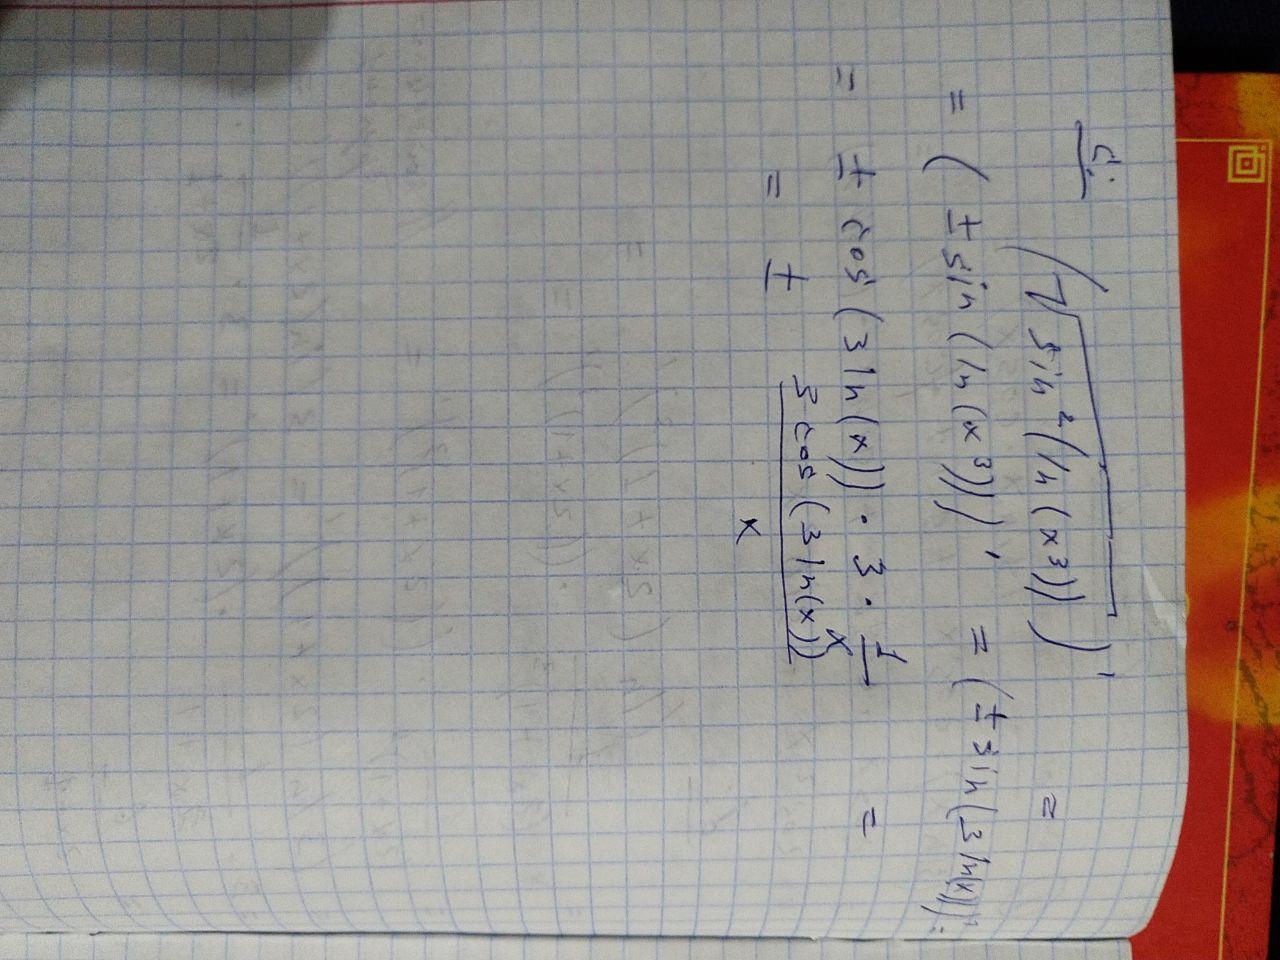 c:
(√sin²(ln(x³)))' =
= (± sin(ln(x³)))' = (± sin(3 ln(x)))' =
= ± cos(3 ln(x)) · 3 · 1/x =
= ± 3 cos(3 ln(x))/x